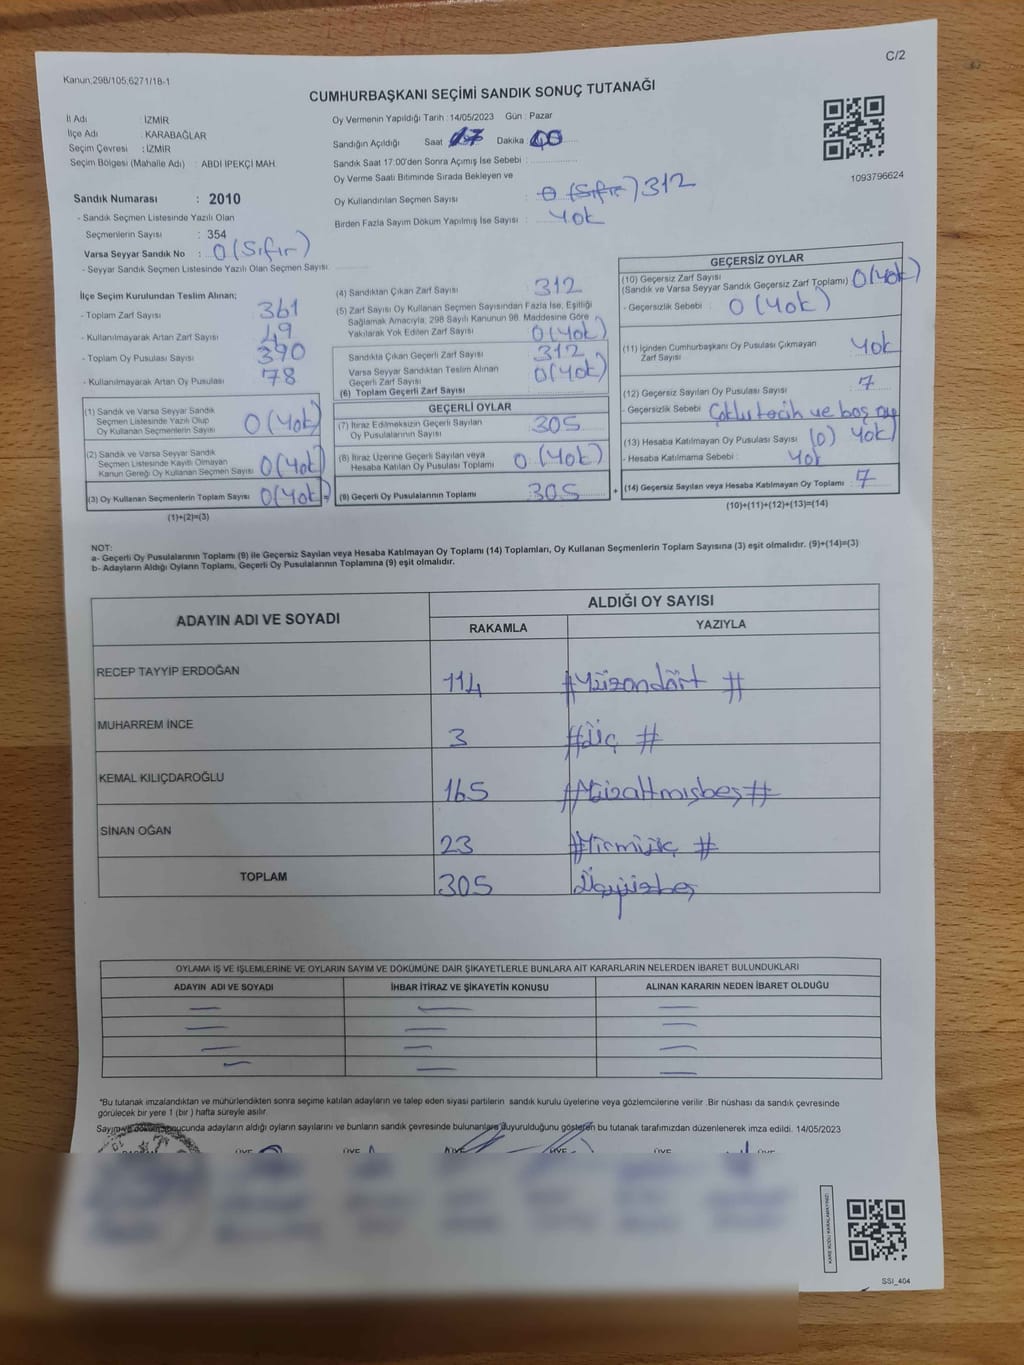 C/2
Kanun,298/105,6271/18-1
CUMHURBAŞKANI SEÇİMİ SANDIK SONUÇ TUTANAĞI
İl Adı : İZMİR
İlçe Adı : KARABAĞLAR
Seçim Çevresi : İZMİR
Seçim Bölgesi (Mahalle Adı) : ABDİ İPEKÇİ MAH.
Sandık Numarası : 2010
- Sandık Seçmen Listesinde Yazılı Olan
Seçmenlerin Sayısı : 354
Varsa Seyyar Sandık No : 0 (Sıfır)
- Seyyar Sandık Seçmen Listesinde Yazılı Olan Seçmen Sayısı:
Oy Vermenin Yapıldığı Tarih : 14/05/2023 Gün : Pazar
Sandığın Açıldığı Saat 17 Dakika 00
Sandık Saat 17:00'den Sonra Açımış İse Sebebi :
Oy Verme Saati Bitiminde Sırada Bekleyen ve
Oy Kullandırılan Seçmen Sayısı : 0 (Sıfır) 312
Birden Fazla Sayım Döküm Yapılmış İse Sayısı : Yok
1093796624
İlçe Seçim Kurulundan Teslim Alınan;
- Toplam Zarf Sayısı : 361
- Kullanılmayarak Artan Zarf Sayısı : 49
- Toplam Oy Pusulası Sayısı : 390
- Kullanılmayarak Artan Oy Pusulası : 78
(1) Sandık ve Varsa Seyyar Sandık
Seçmen Listesinde Yazılı Olup
Oy Kullanan Seçmenlerin Sayısı 0 (Yok)
(2) Sandık ve Varsa Seyyar Sandık
Seçmen Listesinde Kayıtlı Olmayan
Kanun Gereği Oy Kullanan Seçmen Sayısı 0 (Yok)
(3) Oy Kullanan Seçmenlerin Toplam Sayısı 0 (Yok) =
(1)+(2)=(3)
(4) Sandıktan Çıkan Zarf Sayısı 312
(5) Zarf Sayısı Oy Kullanan Seçmen Sayısından Fazla İse, Eşitliği
Sağlamak Amacıyla; 298 Sayılı Kanunun 98. Maddesine Göre
Yakılarak Yok Edilen Zarf Sayısı 0 (Yok)
Sandıkta Çıkan Geçerli Zarf Sayısı 312
Varsa Seyyar Sandıktan Teslim Alınan
Geçerli Zarf Sayısı 0 (Yok)
(6) Toplam Geçerli Zarf Sayısı
GEÇERLİ OYLAR
(7) İtiraz Edilmeksizin Geçerli Sayılan
Oy Pusulalarının Sayısı 305
(8) İtiraz Üzerine Geçerli Sayılan veya
Hesaba Katılan Oy Pusulası Toplamı 0 (Yok)
(9) Geçerli Oy Pusulalarının Toplamı 305 +
GEÇERSİZ OYLAR
(10) Geçersiz Zarf Sayısı
(Sandık ve Varsa Seyyar Sandık Geçersiz Zarf Toplamı) 0 (Yok)
- Geçersizlik Sebebi : 0 (Yok)
(11) İçinden Cumhurbaşkanı Oy Pusulası Çıkmayan
Zarf Sayısı Yok
(12) Geçersiz Sayılan Oy Pusulası Sayısı : 7
- Geçersizlik Sebebi : Çoklu tecih ve boş oy
(13) Hesaba Katılmayan Oy Pusulası Sayısı (0) Yok)
- Hesaba Katılmama Sebebi : Yok
(14) Geçersiz Sayılan veya Hesaba Katılmayan Oy Toplamı : 7
(10)+(11)+(12)+(13)=(14)
NOT:
a- Geçerli Oy Pusulalarının Toplamı (9) ile Geçersiz Sayılan veya Hesaba Katılmayan Oy Toplamı (14) Toplamları, Oy Kullanan Seçmenlerin Toplam Sayısına (3) eşit olmalıdır. (9)+(14)=(3)
b- Adayların Aldığı Oyların Toplamı, Geçerli Oy Pusulalarının Toplamına (9) eşit olmalıdır.
ADAYIN ADI VE SOYADI
ALDIĞI OY SAYISI
RAKAMLA YAZIYLA
RECEP TAYYİP ERDOĞAN 114 #Yüzondört #
MUHARREM İNCE 3 #Üç #
KEMAL KILIÇDAROĞLU 165 #Yüzaltmışbeş#
SİNAN OĞAN 23 #Yirmiüç #
TOPLAM 305 Üçyüzbeş
OYLAMA İŞ VE İŞLEMLERİNE VE OYLARIN SAYIM VE DÖKÜMÜNE DAİR ŞİKAYETLERLE BUNLARA AİT KARARLARIN NELERDEN İBARET BULUNDUKLARI
ADAYIN ADI VE SOYADI İHBAR İTİRAZ VE ŞİKAYETİN KONUSU ALINAN KARARIN NEDEN İBARET OLDUĞU
*Bu tutanak imzalandıktan ve mühürlendikten sonra seçime katılan adayların ve talep eden siyasi partilerin sandık kurulu üyelerine veya gözlemcilerine verilir .Bir nüshası da sandık çevresinde
görülecek bir yere 1 (bir ) hafta süreyle asılır.
adayların aldığı oyların sayılarını ve bunların sandık çevresinde bulunanlara duyurulduğunu gösteren bu tutanak tarafımızdan düzenlenerek imza edildi. 14/05/2023
ÜYE ÜYE ÜYE ÜYE ÜYE ÜYE
KARE KODU KARALAMAYINIZ!
SSI_404